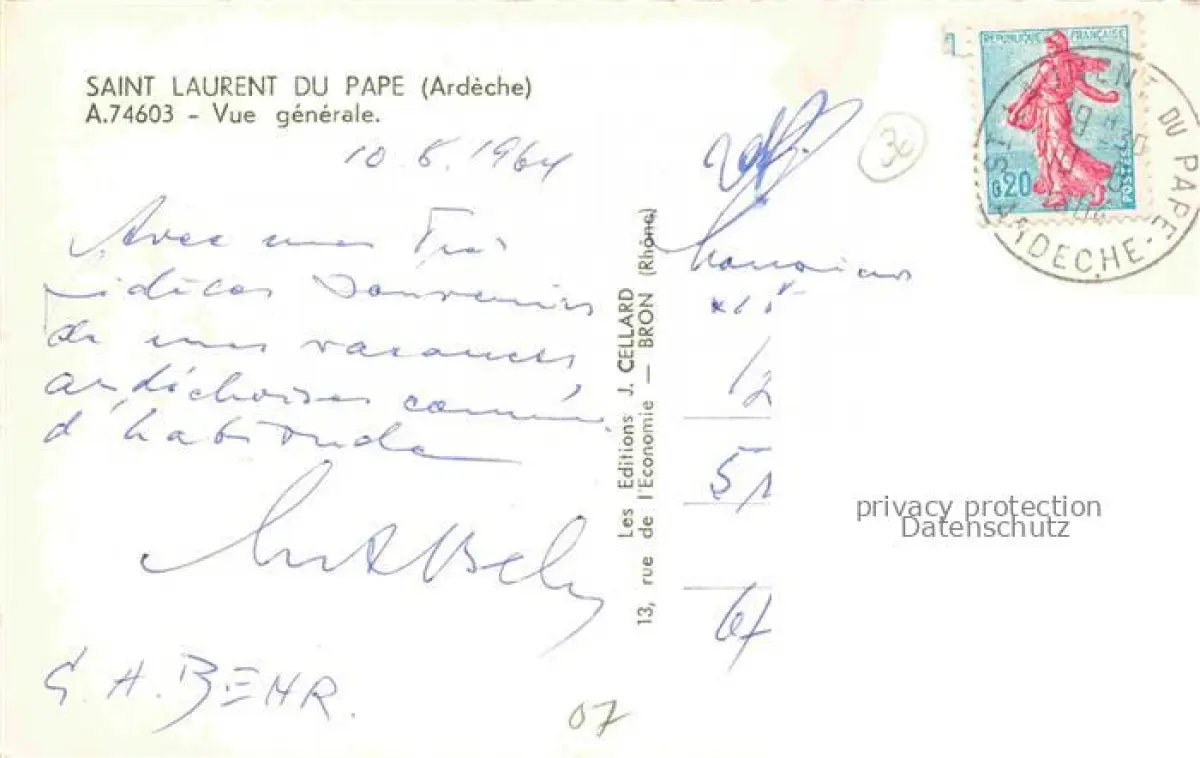 SAINT LAURENT DU PAPE (Ardèche)
A.74603 - Vue générale.
10.8.1964
Avec mes
souvenirs
de mes vacances
ardéchoises comme
d'habitude
G. H. BEHR.
07
Les Editions J. CELLARD
13, rue de l'Economie — BRON (Rhône)
3€
Monsieur
REPUBLIQUE FRANÇAISE
0,20
POSTES
ST LAURENT DU PAPE
ARDECHE
privacy protection
Datenschutz